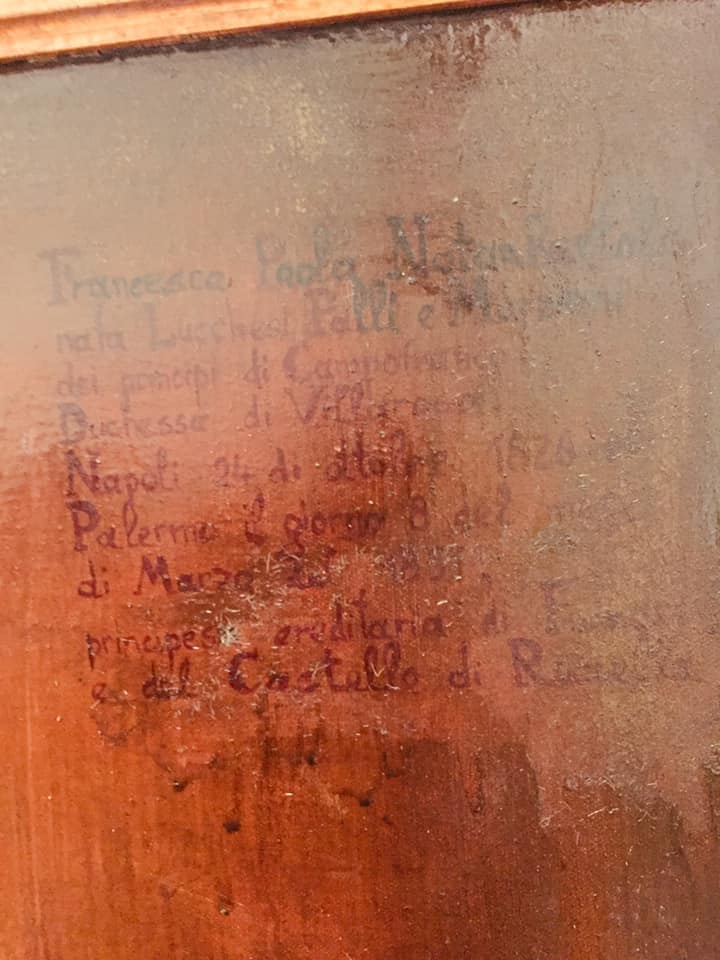 Francesca Paola Notarbartolo
nata Lucchesi Palli e
dei principi di Campofranco
Duchessa di Villarosa
Napoli 24 di ottobre 1826
Palermo il giorno 8 del mese
di Marzo
principessa ereditaria di
e del Castello di